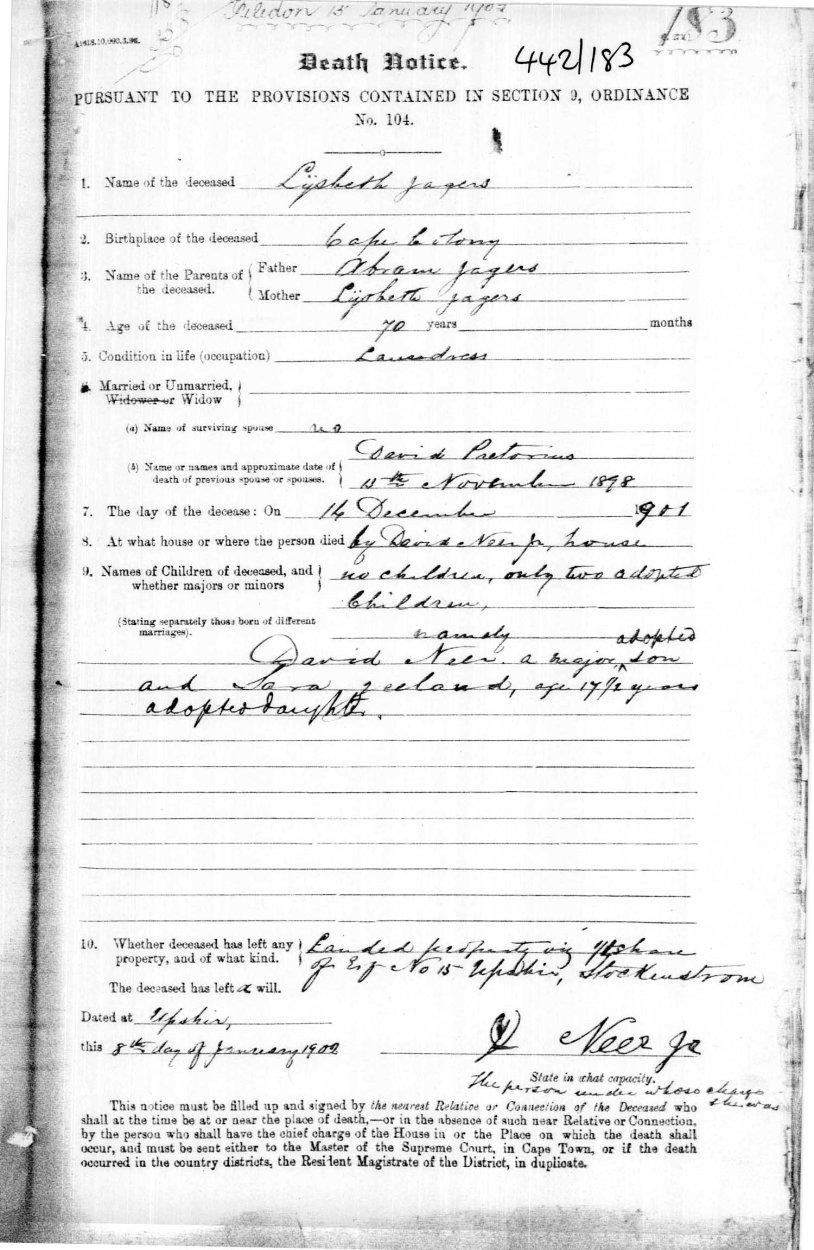 15 January 1902
183
A1618.10,000.3.96.
Death Notice.
442/183
PURSUANT TO THE PROVISIONS CONTAINED IN SECTION 9, ORDINANCE
No. 104.
1. Name of the deceased Lijsbeth Jagers
2. Birthplace of the deceased Cape Colony
3. Name of the Parents of the deceased. Father Abram Jagers
Mother Lijsbeth Jagers
4. Age of the deceased 70 years months
5. Condition in life (occupation) Laundress
Married or Unmarried,
Widower or Widow
(a) Name of surviving spouse no
David Pretorius
(b) Name or names and approximate date of
death of previous spouse or spouses. 13th November 1898
7. The day of the decease: On 14 December 1901
8. At what house or where the person died by David Neer Jr, house
9. Names of Children of deceased, and no children, only two adopted
whether majors or minors
Children,
(Stating separately those born of different
marriages).
namely
David Neer. a major adopted son
and Sara Zeeland, age 17½ years
adopted daughter.
10. Whether deceased has left any Landed property viz 1/2 share
property, and of what kind. of Erf No 15 Upshir, Stockenstrom
The deceased has left a will.
Dated at Upshir,
this 8th day of January 1902 Neer Jr
State in what capacity.
The person under whose charge
she was
This notice must be filled up and signed by the nearest Relative or Connection of the Deceased who
shall at the time be at or near the place of death,—or in the absence of such near Relative or Connection,
by the person who shall have the chief charge of the House in or the Place on which the death shall
occur, and must be sent either to the Master of the Supreme Court, in Cape Town, or if the death
occurred in the country districts, the Resident Magistrate of the District, in duplicate.